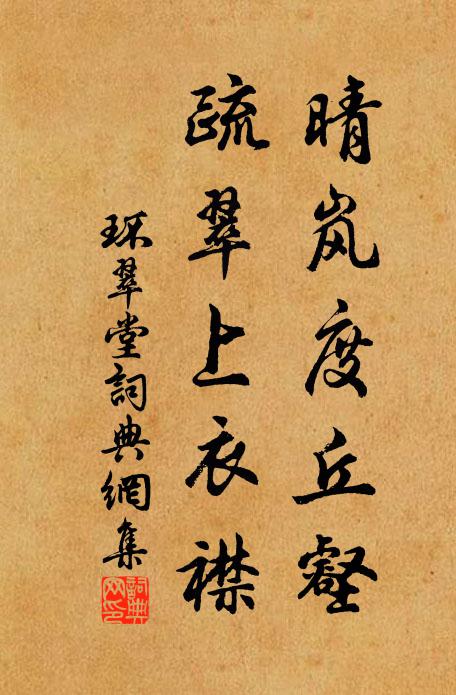 晴岚度丘壑
疏翠上衣襟
环翠堂詞典網集
詞典
网印